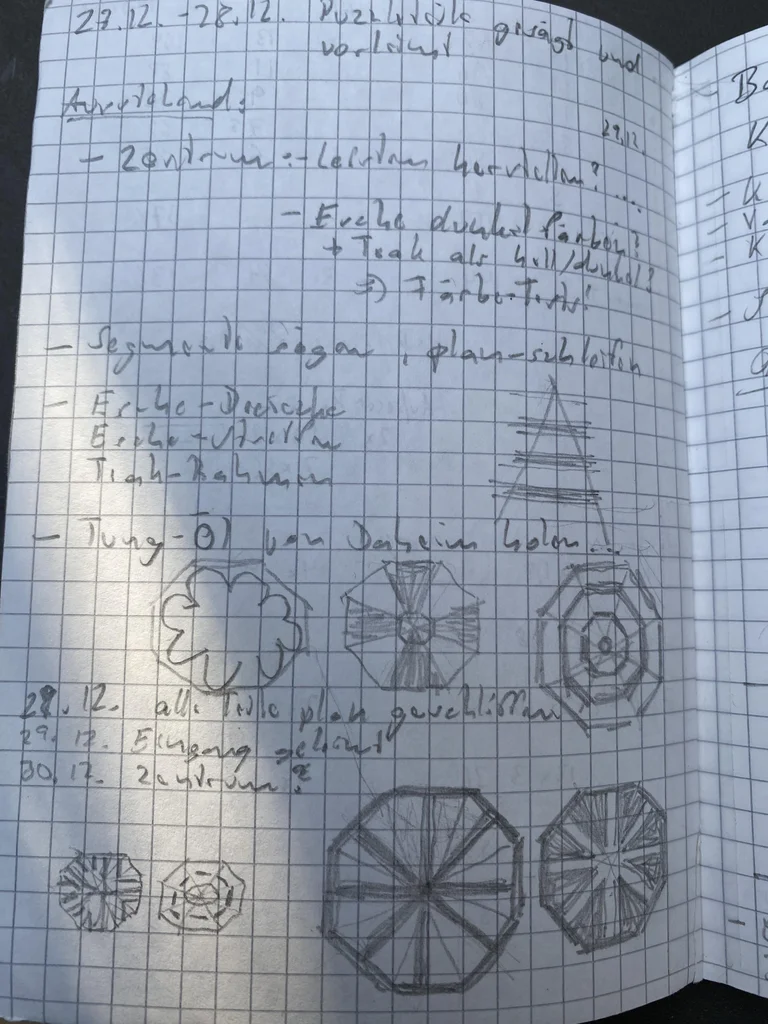 27.12. - 28.12. Puzzlestücke gesägt und
verleimt
29.12.
- Zentrum :- Leisten herstellen? ...
- Esche dunkel färben?
+ Teak als hell/dunkel?
=> Färbe-Tests!
- Segmente sägen, plan-schleifen
- Esche-
Esche-Streifen
Teak-Rahmen
- Tung-Öl von Daheim holen...
28.12. alle Teile plan geschliffen
29.12. Eingang geleimt
30.12. Zentrum?
B
K
K